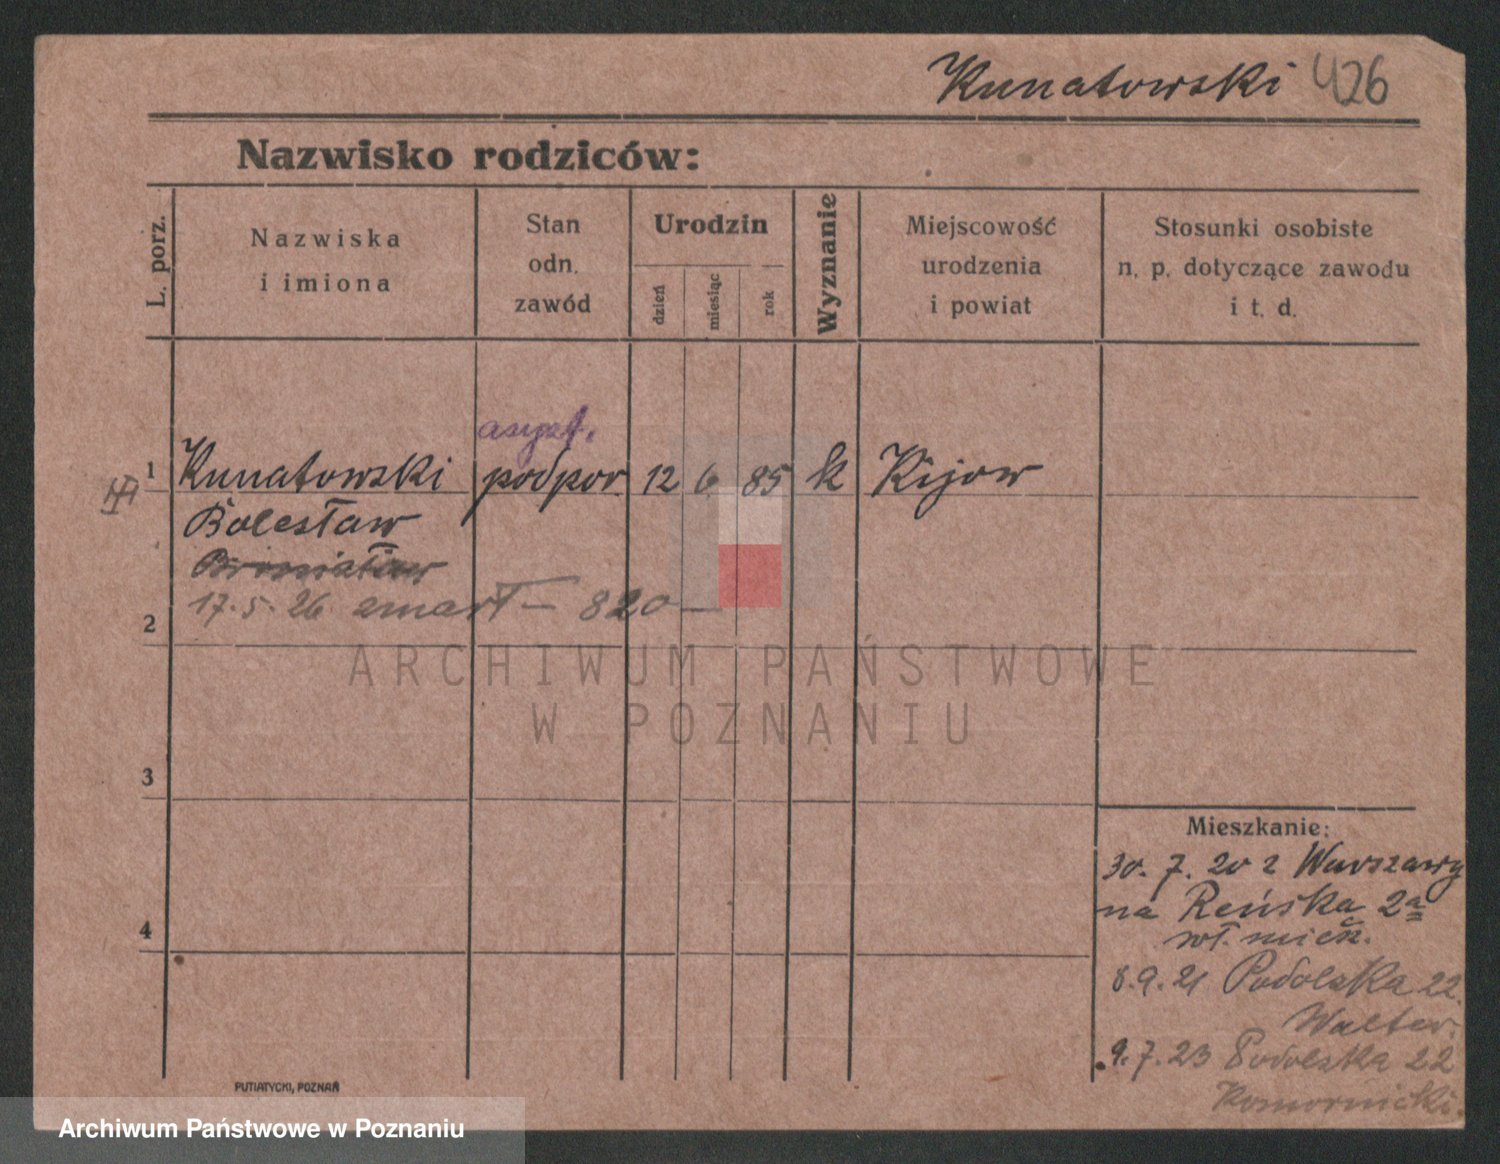 Kunatowski 426
Nazwisko rodziców:
L. porz.
Nazwiska
i imiona
Stan
odn.
zawód
Urodzin
dzień
miesiąc
rok
Wyznanie
Miejscowość
urodzenia
i powiat
Stosunki osobiste
n. p. dotyczące zawodu
i t. d.
asyst.
1 Kunatowski podpor. 12 6 85 k Kijow
Bolesław
Bronisław
17.5.26 zmarł — 820 —
2
ARCHIWUM PAŃSTWOWE
W POZNANIU
3
Mieszkanie:
30. 7. 20 z Warszawy
na Reńska 2a
wł. miesz.
8.9.21 Podolska 22
Walter.
9.7.23 Podolska 22
Komornicki.
4
PUTIATYCKI, POZNAŃ
Archiwum Państwowe w Poznaniu